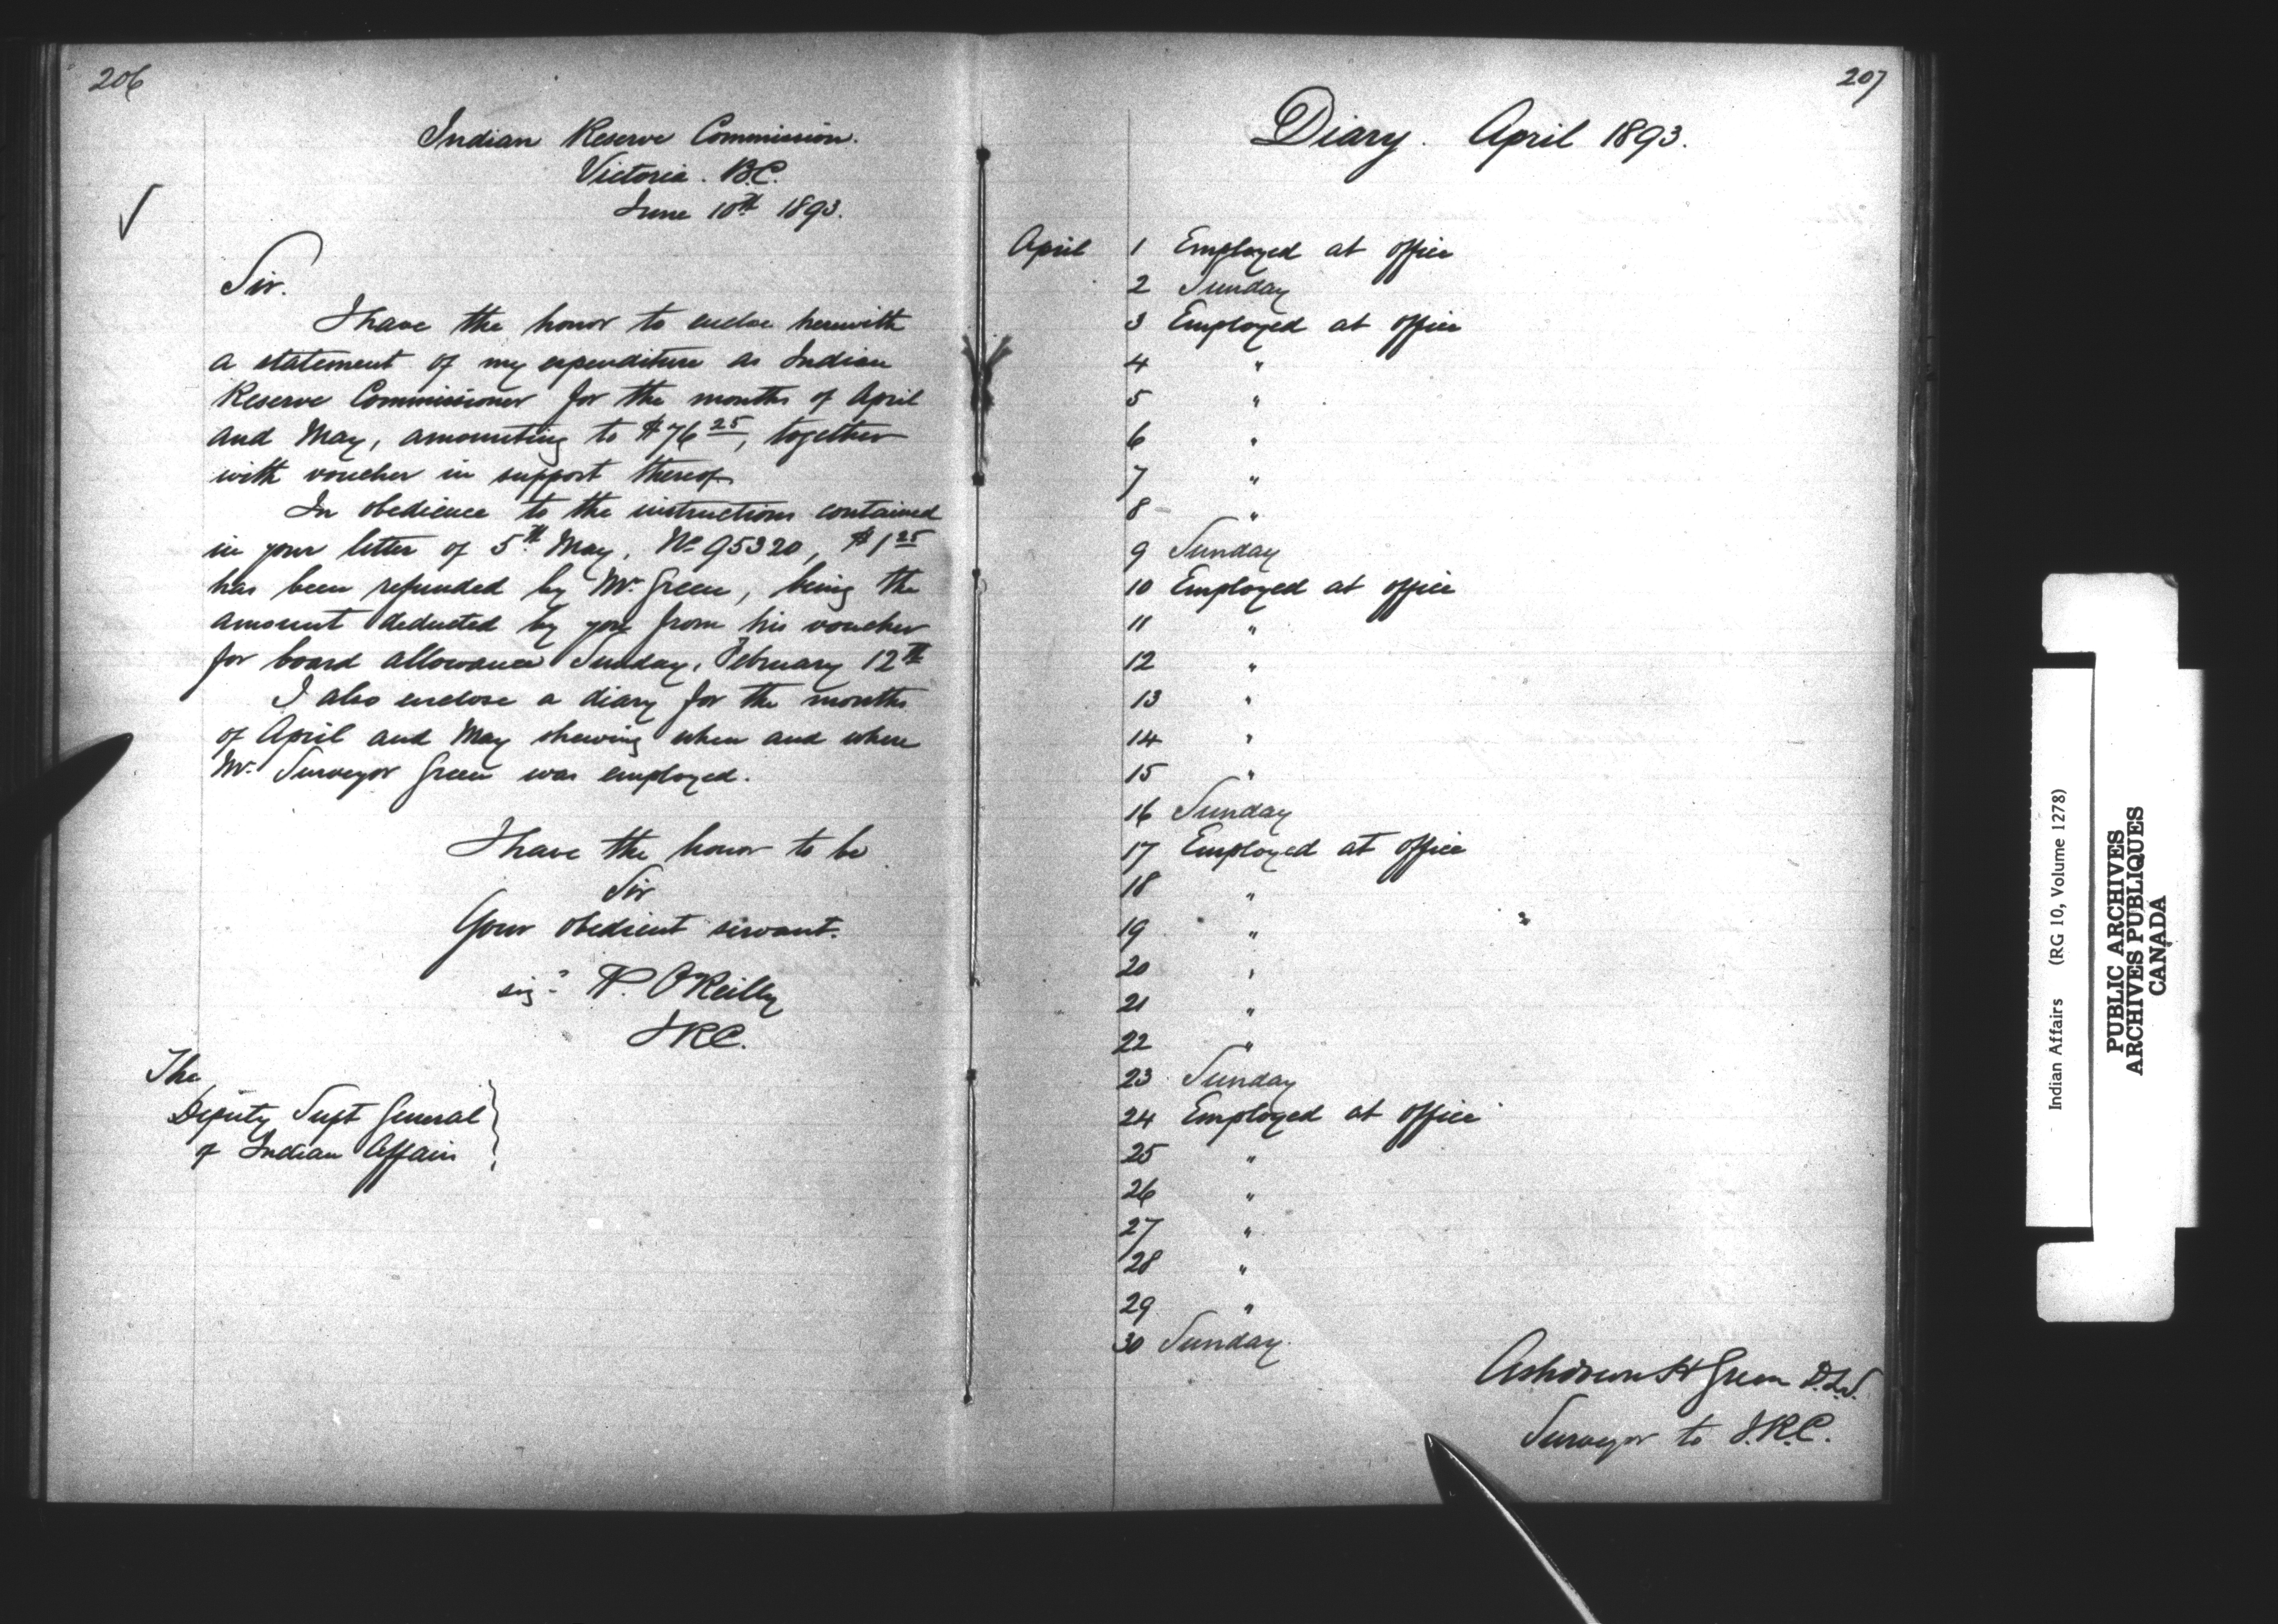 206
Indian Reserve Commission.
Victoria. B.C.
June 10th 1893.
Sir.
I have the honor to enclose herewith
a statement of my expenditure as Indian
Reserve Commissioner for the months of April
and May, amounting to $76 25, together
with voucher in support thereof
In obedience to the instructions contained
in your letter of 5th May, No 95320, $1 25
has been refunded by Mr. Green, being the
amount deducted by you from his voucher
for board allowance Sunday, February 12th
I also enclose a diary for the months
of April and May shewing when and where
Mr. Surveyor Green was employed.
I have the honor to be
Sir
Your obedient servant.
sigd P. O'Reilly
I R C.
The
Deputy Supt General
of Indian Affairs
207
Diary. April 1893.
April 1 Employed at office
2 Sunday
3 Employed at office
4 "
5 "
6 "
7 "
8 "
9 Sunday
10 Employed at office
11 "
12 "
13 "
14 "
15 "
16 Sunday
17 Employed at office
18 "
19 "
20 "
21 "
22 "
23 Sunday
24 Employed at office
25 "
26 "
27 "
28 "
29 "
30 Sunday.
Ashdown H Green D.L.S.
Surveyor to I.R.C.
Indian Affairs (RG 10, Volume 1278)
PUBLIC ARCHIVES
ARCHIVES PUBLIQUES
CANADA